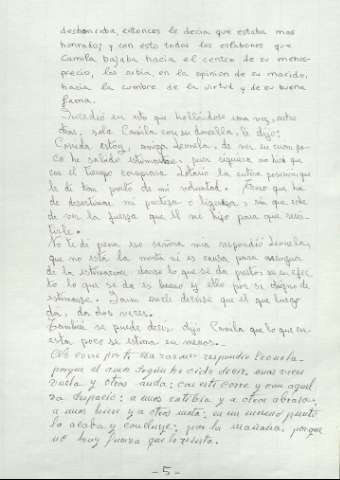 deshonraba, entonces le decia que estaba mas
honrado; y con esto todos los eslabones que
Camila bajaba hacia el centro de su menos-
precio, los subia, en la opinion de su marido,
hacia la cumbre de la virtud y de su buena
fama.
Sucedió en esto que hallándose una vez, entre
otras, sola Camila con su doncella, le dijo:
Corrida estoy, amiga Leonela, de ver en cuan po-
co he sabido estimarme, pues siquiera no hice que
con el tiempo comprara Lotario la entera posesion que
le di tan presto de mi voluntad. Temo que ha
de desestimar mi presteza o ligereza, sin que eche
de ver la fuerza que él me hizo para que resis-
tirle.
No te dé pena eso señora mia respondió Leonela,
que no está la monta ni es causa para menguar
de la estimacion, darse lo que se da presto si en efec-
to lo que se da es bueno y ello por si digno de
estimarse. Y aun suele decirse que el que luego
da, da dos veces.
Tambien se puede decir, dijo Camila que lo que cu-
esta poco se estima en menos.
No corre por ti esa razon respondio Leonela
porque el amor segun he oido decir, unas veces
vuela y otras anda: con este corre y con aquel
va despacio: a unos entibia y a otros abrasa:
a unos hiere y a otros mata: en un mismo punto
lo acaba y concluye: por la mañana, porque
no hay fuerza que lo resista.
- 5 -